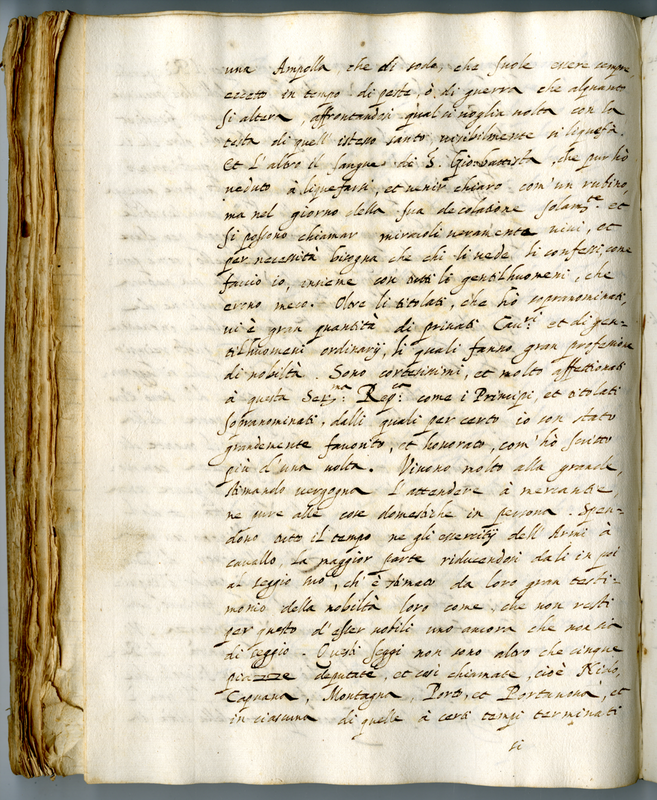 una Ampolla, che di soda, che suole essere sempre
eccetto in tempo di peste, ò di guerra che alquanto
si altera, affrontandosi qual si voglia volta con la
testa di quell' istesso santo visibilmente si liquefà.
Et l'altro il sangue di S. Gio: battista, che pur hò
veduto à liquefarsi, et venir chiaro com' un rubino,
ma nel giorno della sua decolatione solam.te et
si possono chiamar miracoli veramente vivi, et
per necessità bisogna che chi li vede, li confessi, come
faccio io, insieme con tutti li gentilhuomeni, che
erono meco. Oltre li titolati, che hò sopranominati,
vi è gran quantità di privati Cav.ri et di gen-
tilhuomeni ordinarij, li quali fanno gran professione
di nobiltà. Sono cortesissimi, et molto affettionati
à questa Ser.ma Rep.ca come i Principi, et titolati
sopranominati, dalli quali per certo io son stato
grandemente favorito, et honorato, com' hò scritto
più d'una volta. Vivono molto alla grande,
stimando vergogna l'attendere à mercantie,
ne pure alle cose domestiche in persona. Spen-
dono tutto il tempo ne gli essercitij dell' Armi à
cavallo, la maggior parte riducendosi da li in poi
al seggio suo, ch' è stimato da loro gran testi-
monio della nobiltà loro come, che non resti
per questo d'esser nobili uno ancora che non sia
di seggio. Questi seggi non sono altro che cinque
piazze deputate, et così chiamate, cioè Nido,
Capuana, Montagna, Porto, et Portanova, et
in ciascuna di quelle à certi tempi terminati
si